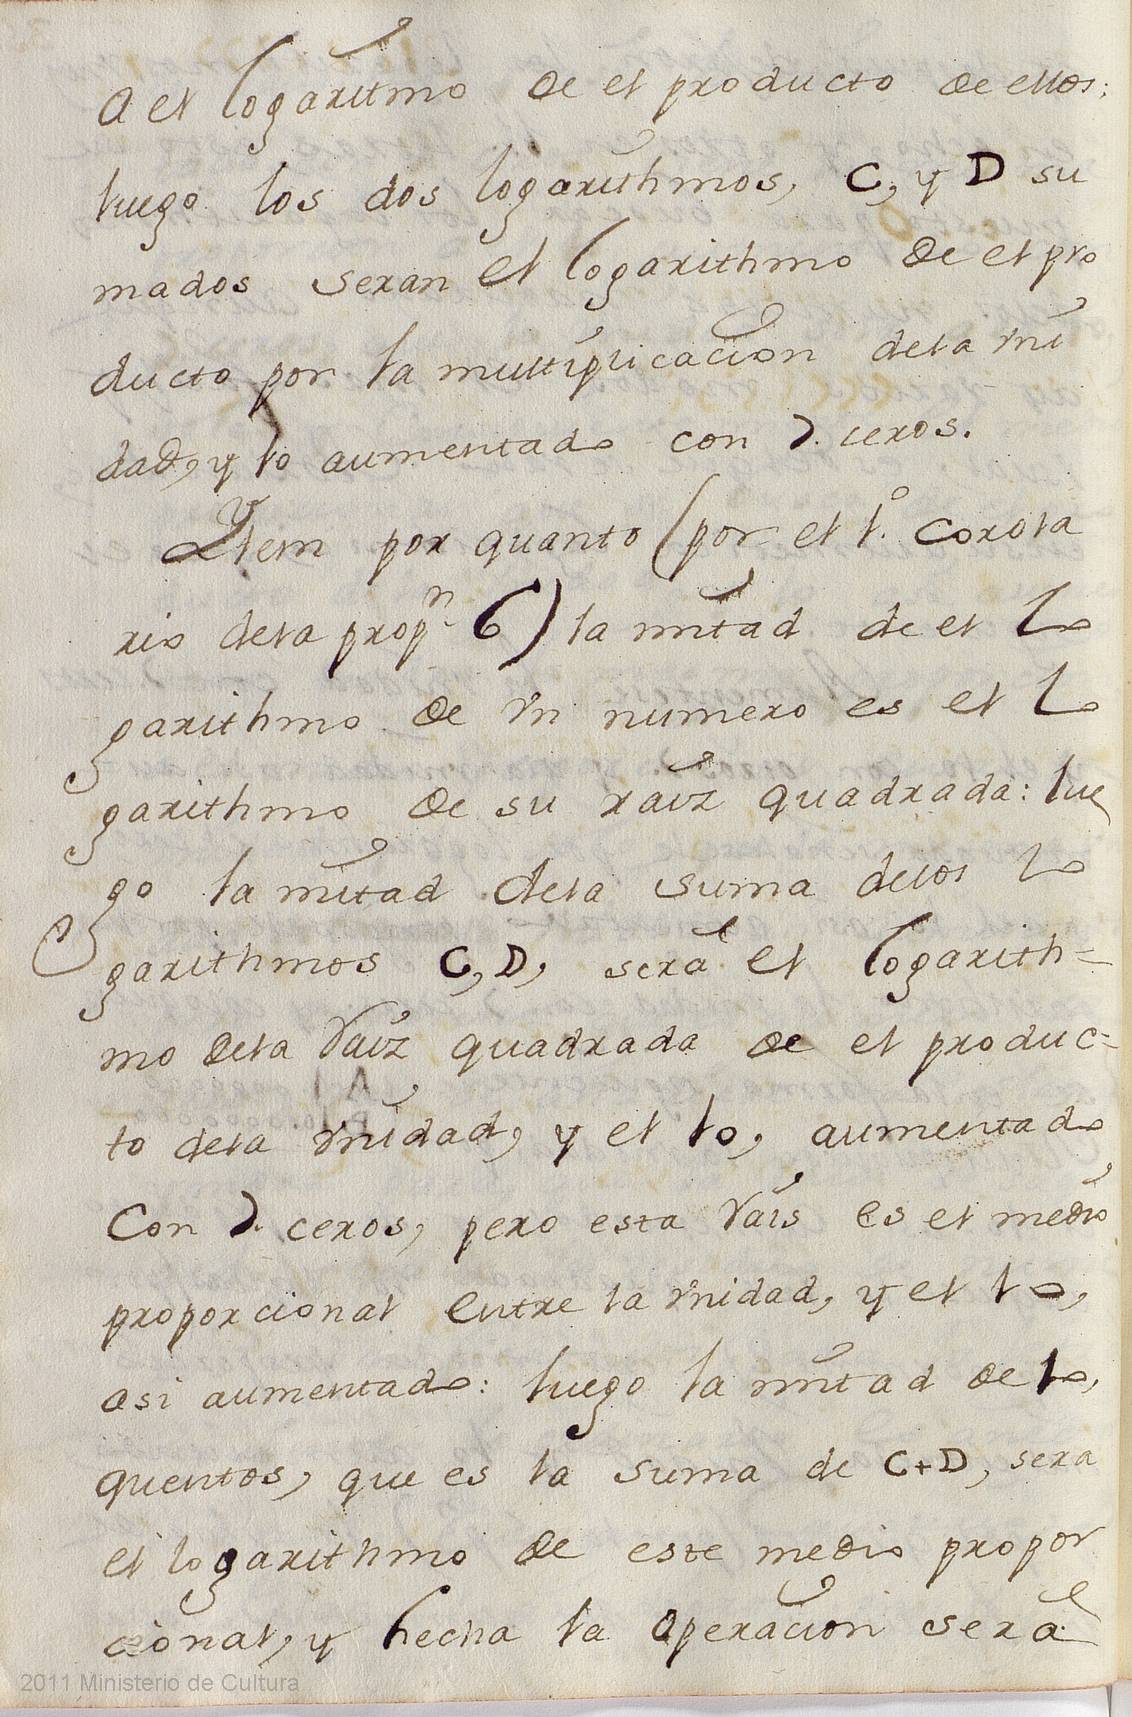 a el logaritmo de el producto de ellos;
luego los dos logarithmos, C, y D su
mados seran el logarithmo de el pro
ducto por la multiplicacion dela vni
dad, y 10 aumentado con 7. ceros.
Ytem por quanto (por el 1.º corola
rio dela propn. 6) la mitad de el lo
garithmo de vn numero es el lo
garithmo de su raiz quadrada: lue
go la mitad dela suma delos lo
garithmos C, D, será el logarith=
mo dela raiz quadrada de el produc=
to dela vnidad, y el 10, aumentado
con 7. ceros, pero esta rais es el medio
proporcional entre la vnidad, y el 10,
asi aumentado: luego la mitad de 10,
quentos, que es la suma de C+D, sera
el logarithmo de este medio propor
cional, y hecha la operacion será
2011 Ministerio de Cultura